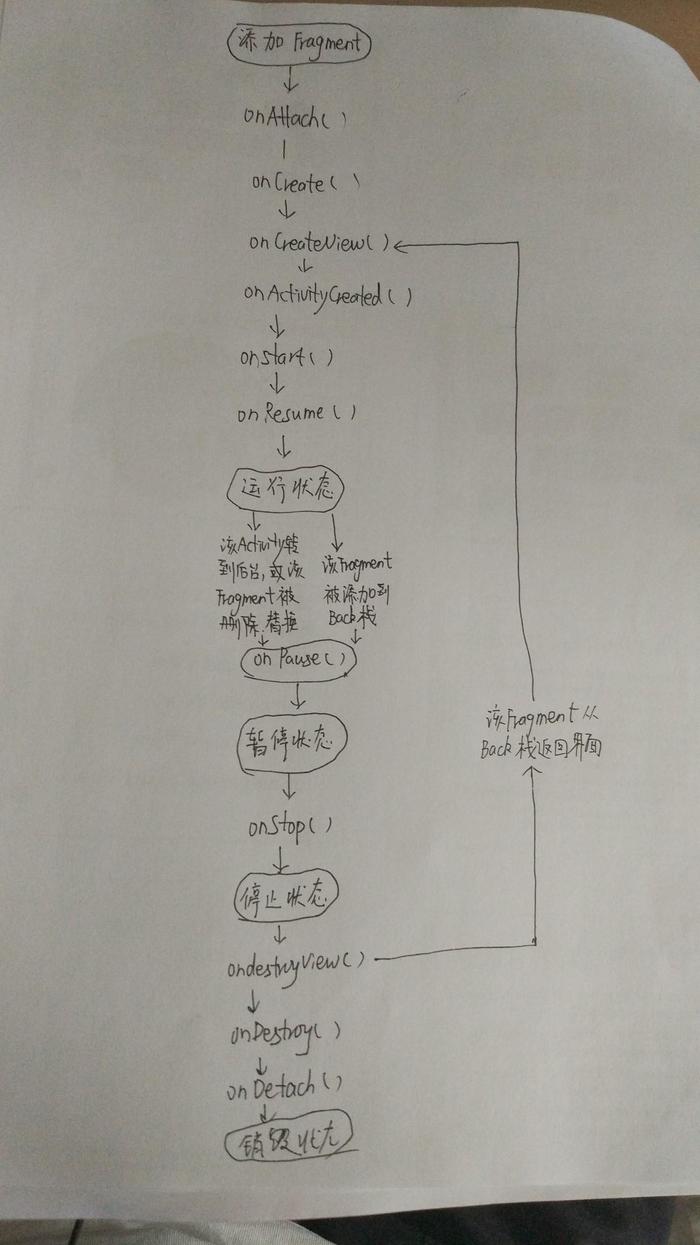 添加 Fragment
onAttach()
onCreate()
onCreateView()
onActivityCreated()
onStart()
onResume()
运行状态
该Activity转
到后台,或该
Fragment被
删除.替换
该Fragment
被添加到
Back栈
onPause()
暂停状态
该Fragment从
Back栈返回界面
onStop()
停止状态
ondestroyView()
onDestroy()
onDetach()
销毁状态